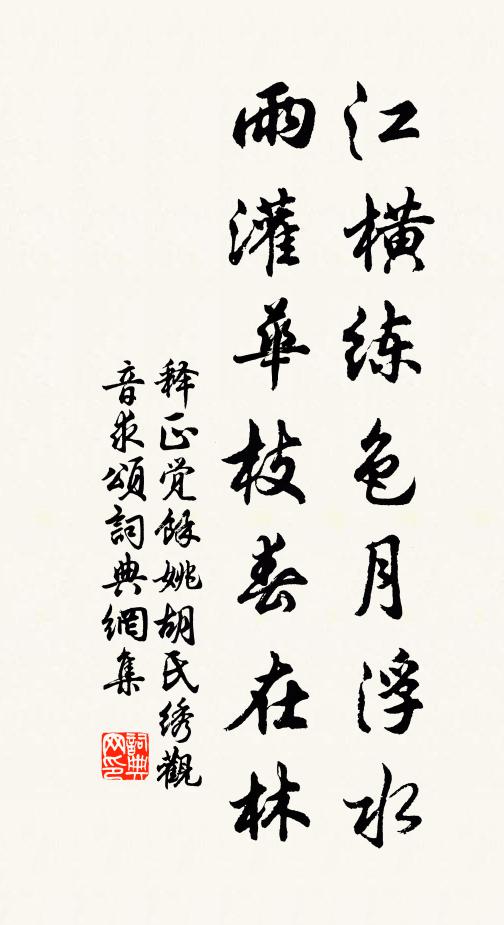 江横练色月浮水
雨灌華枝春在林
释正觉餘姚胡氏绣觀
音求頌詞典網集
詞典
网印